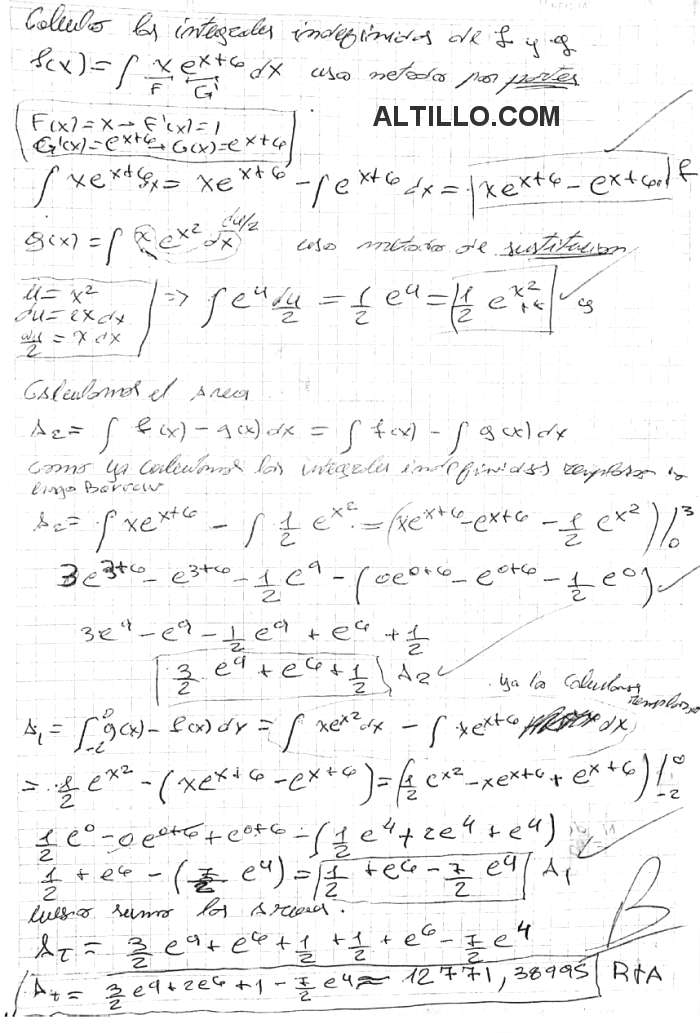 Calculo las integrales indefinidas de f y g
f(x) = ∫ x e^{x+6} dx uso metodo por partes
F G'
ALTILLO.COM
F(x) = x → F'(x) = 1
G'(x) = e^{x+6} → G(x) = e^{x+6}
∫ x e^{x+6} dx = x e^{x+6} - ∫ e^{x+6} dx = x e^{x+6} - e^{x+6} f
g(x) = ∫ x e^{x^2} dx du/2 uso metodo de sustitucion
u = x^2
du = 2x dx
du/2 = x dx
⇒ ∫ e^u du/2 = 1/2 e^u = 1/2 e^{x^2} g
Calculamos el area
A2 = ∫ f(x) - g(x) dx = ∫ f(x) - ∫ g(x) dx
como ya calculamos las integrales indefinidas remplazo
luego Barrow
A2 = ∫ x e^{x+6} - ∫ 1/2 e^{x^2} = (x e^{x+6} - e^{x+6} - 1/2 e^{x^2}) |_0^3
3 e^{3+6} - e^{3+6} - 1/2 e^9 - (0 e^{0+6} - e^{0+6} - 1/2 e^0)
3 e^9 - e^9 - 1/2 e^9 + e^6 + 1/2
3/2 e^9 + e^6 + 1/2 A2
ya las calculamos remplazo
A1 = ∫_{-2}^0 g(x) - f(x) dx = ∫ x e^{x^2} dx - ∫ x e^{x+6} dx
= 1/2 e^{x^2} - (x e^{x+6} - e^{x+6}) = (1/2 e^{x^2} - x e^{x+6} + e^{x+6}) |_{-2}^0
1/2 e^0 - 0 e^{0+6} + e^{0+6} - (1/2 e^4 + 2 e^4 + e^4)
1/2 + e^6 - (7/2 e^4) = 1/2 + e^6 - 7/2 e^4 A1
luego sumo las areas.
AT = 3/2 e^9 + e^6 + 1/2 + 1/2 + e^6 - 7/2 e^4
At = 3/2 e^9 + 2e^6 + 1 - 7/2 e^4 ≈ 12771,38995 RtA
B